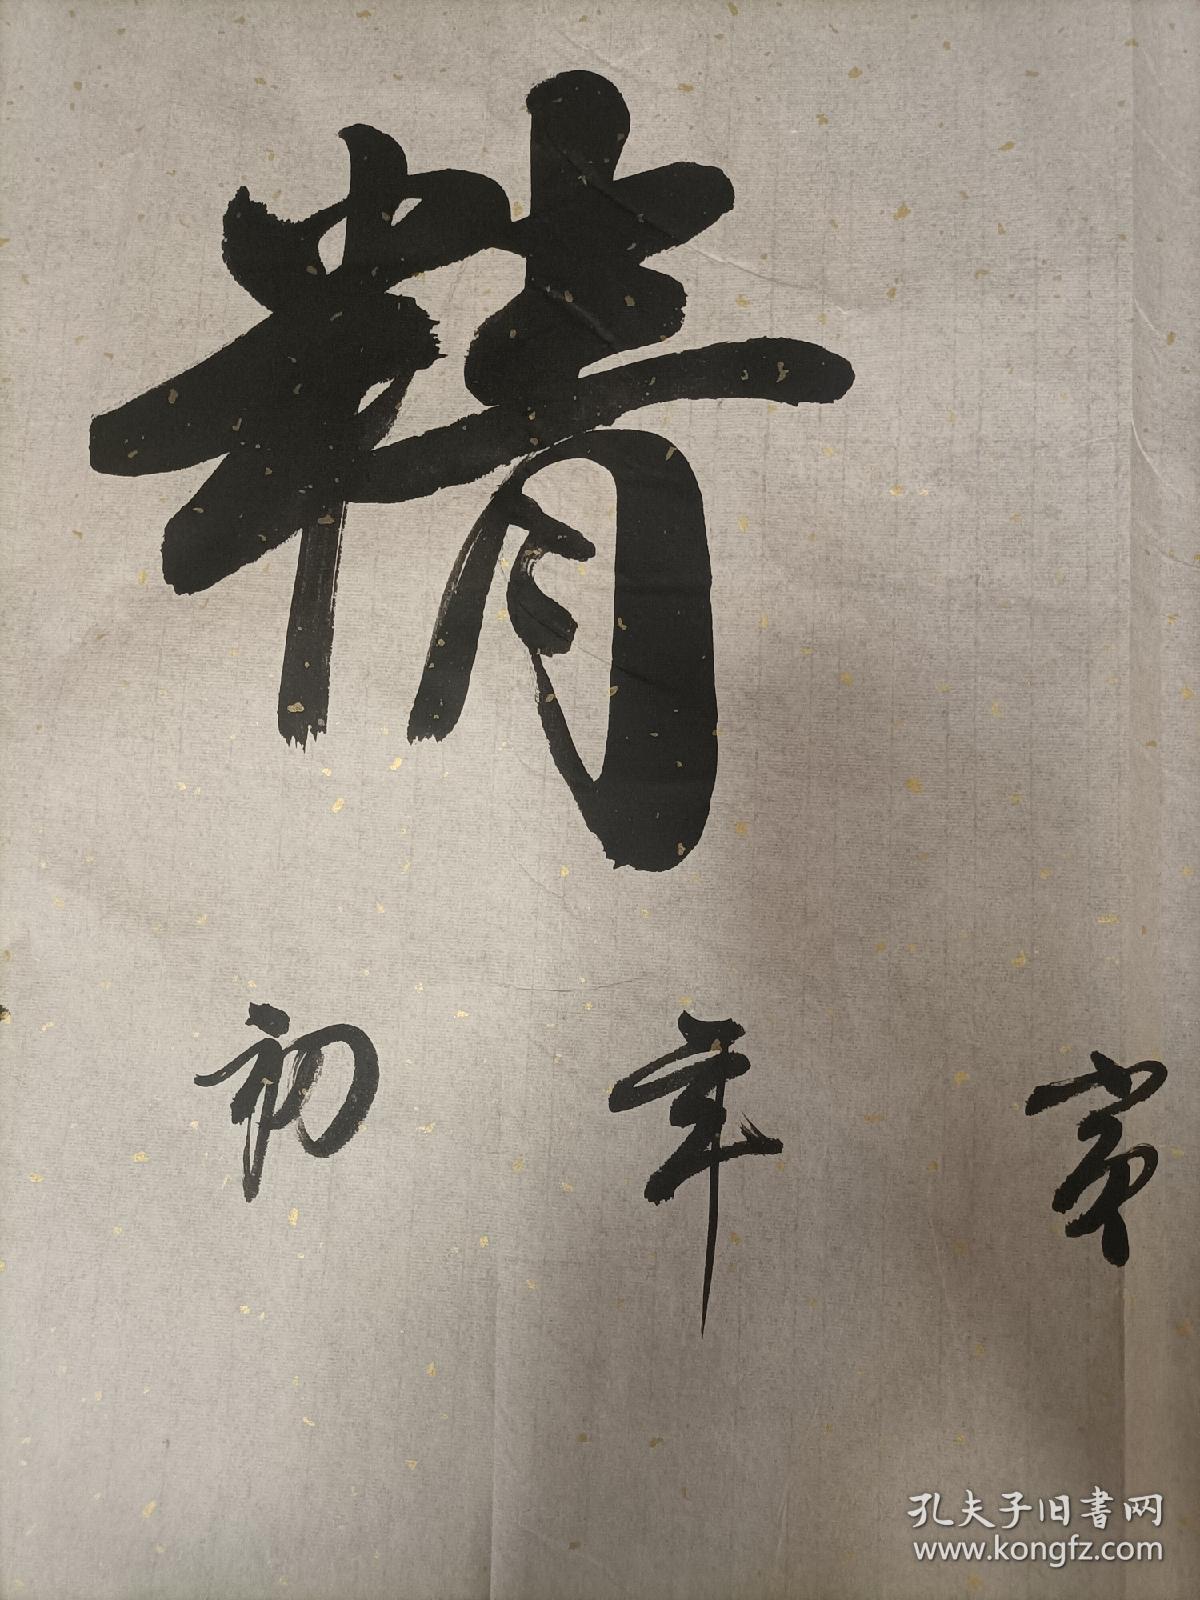 精
寅年初
孔夫子旧書网
www.kongfz.com